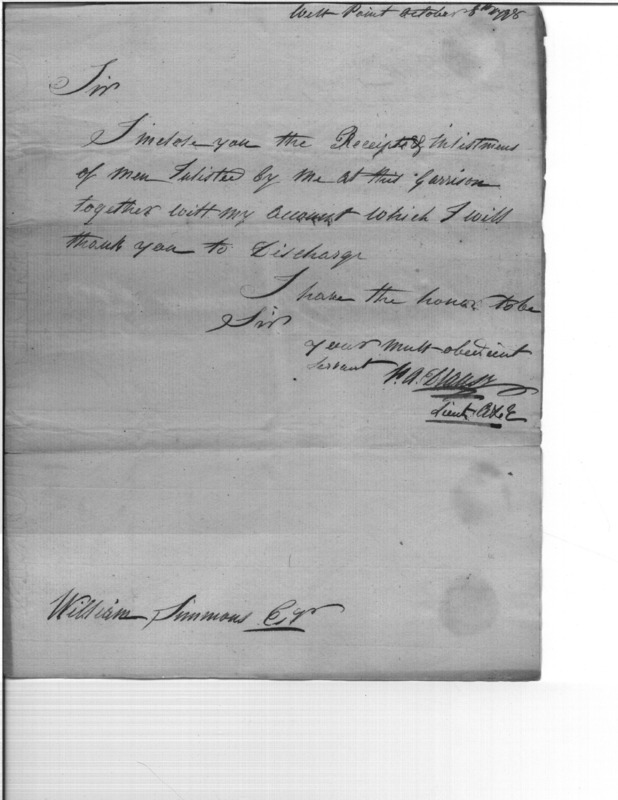 West Point October 8th 1798
Sir
I inclose you the Receipts & Inlistmens
of men Inlisted by me at this Garrison
together with my account which I will
thank you to Discharge
I have the honor to be
Sir
your most obedient
Servant P. A. Dransy
Lieut. A & E
William Simmons Esqr